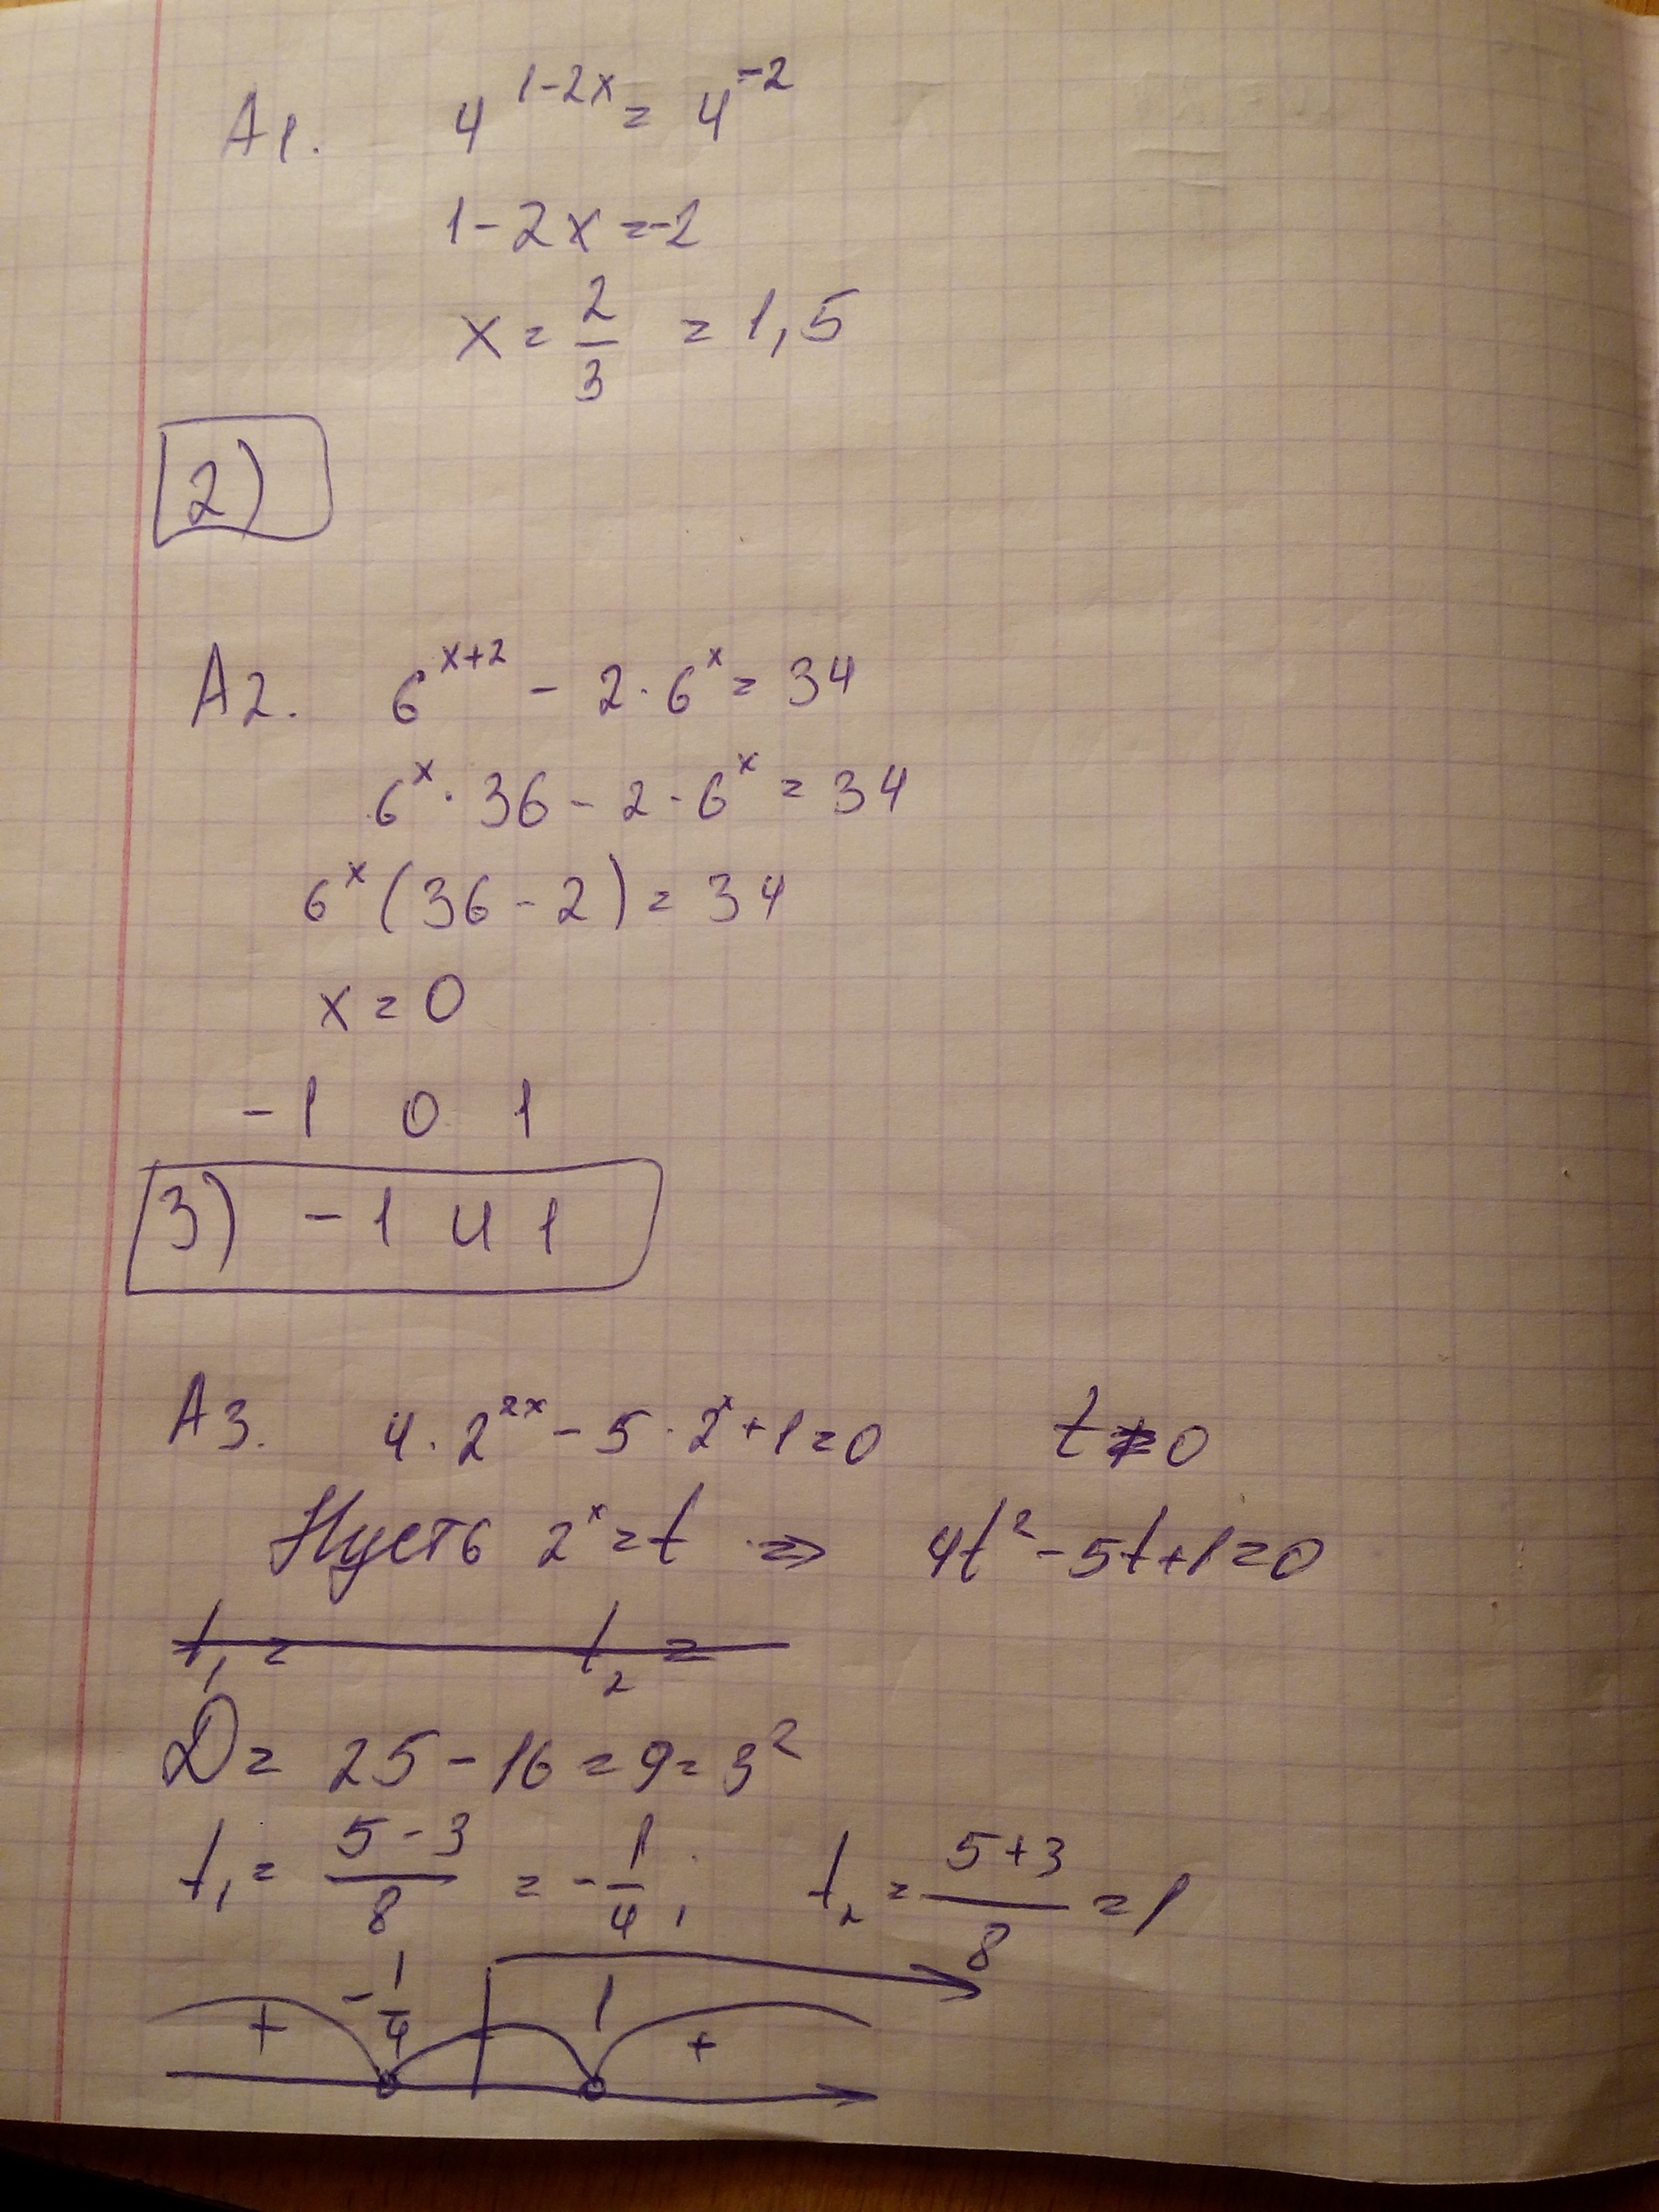 A1. 4^{1-2x} = 4^{-2}
1-2x = -2
x = \frac{2}{3} = 1,5
2)
A2. 6^{x+2} - 2 \cdot 6^x = 34
6^x \cdot 36 - 2 \cdot 6^x = 34
6^x (36 - 2) = 34
x = 0
-1 0 1
3) -1 и 1
A3. 4 \cdot 2^{2x} - 5 \cdot 2^x + 1 = 0 t > 0
Пусть 2^x = t ⇒ 4t^2 - 5t + 1 = 0
t_1 = t_2 =
D = 25 - 16 = 9 = 3^2
t_1 = \frac{5-3}{8} = -\frac{1}{4}, t_2 = \frac{5+3}{8} = 1
-\frac{1}{4} 1
+ - +